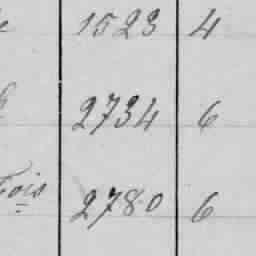 1523 4
2734 6
2780 6